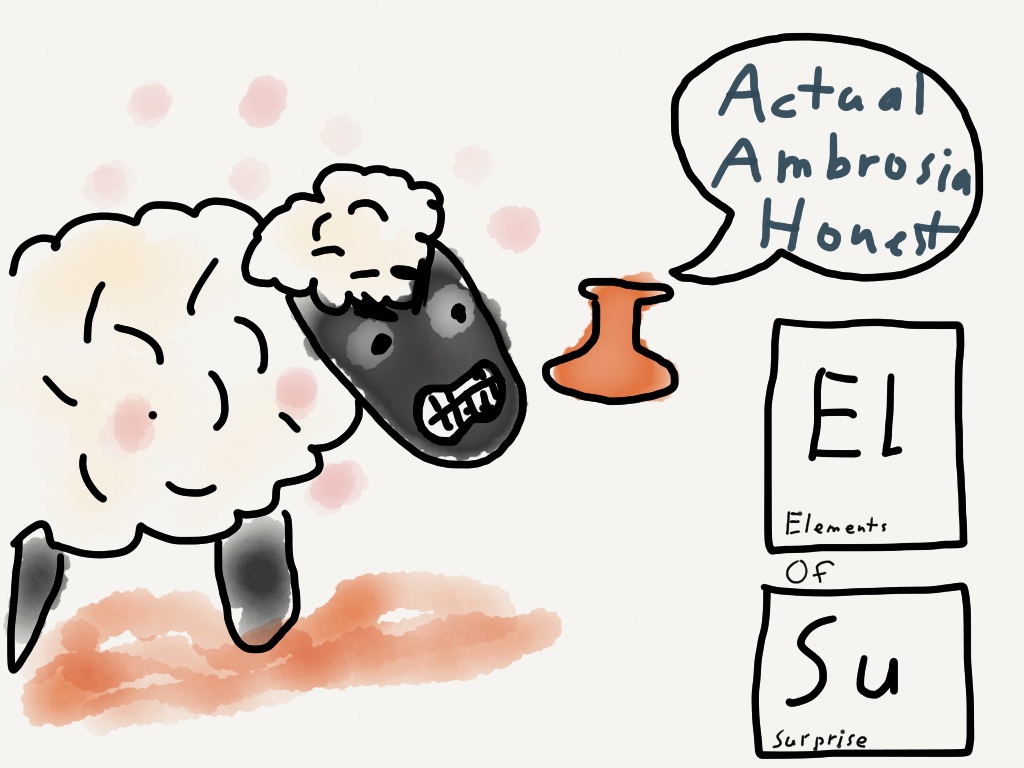 Actual
Ambrosia
Honest
El
Elements
Of
Su
Surprise